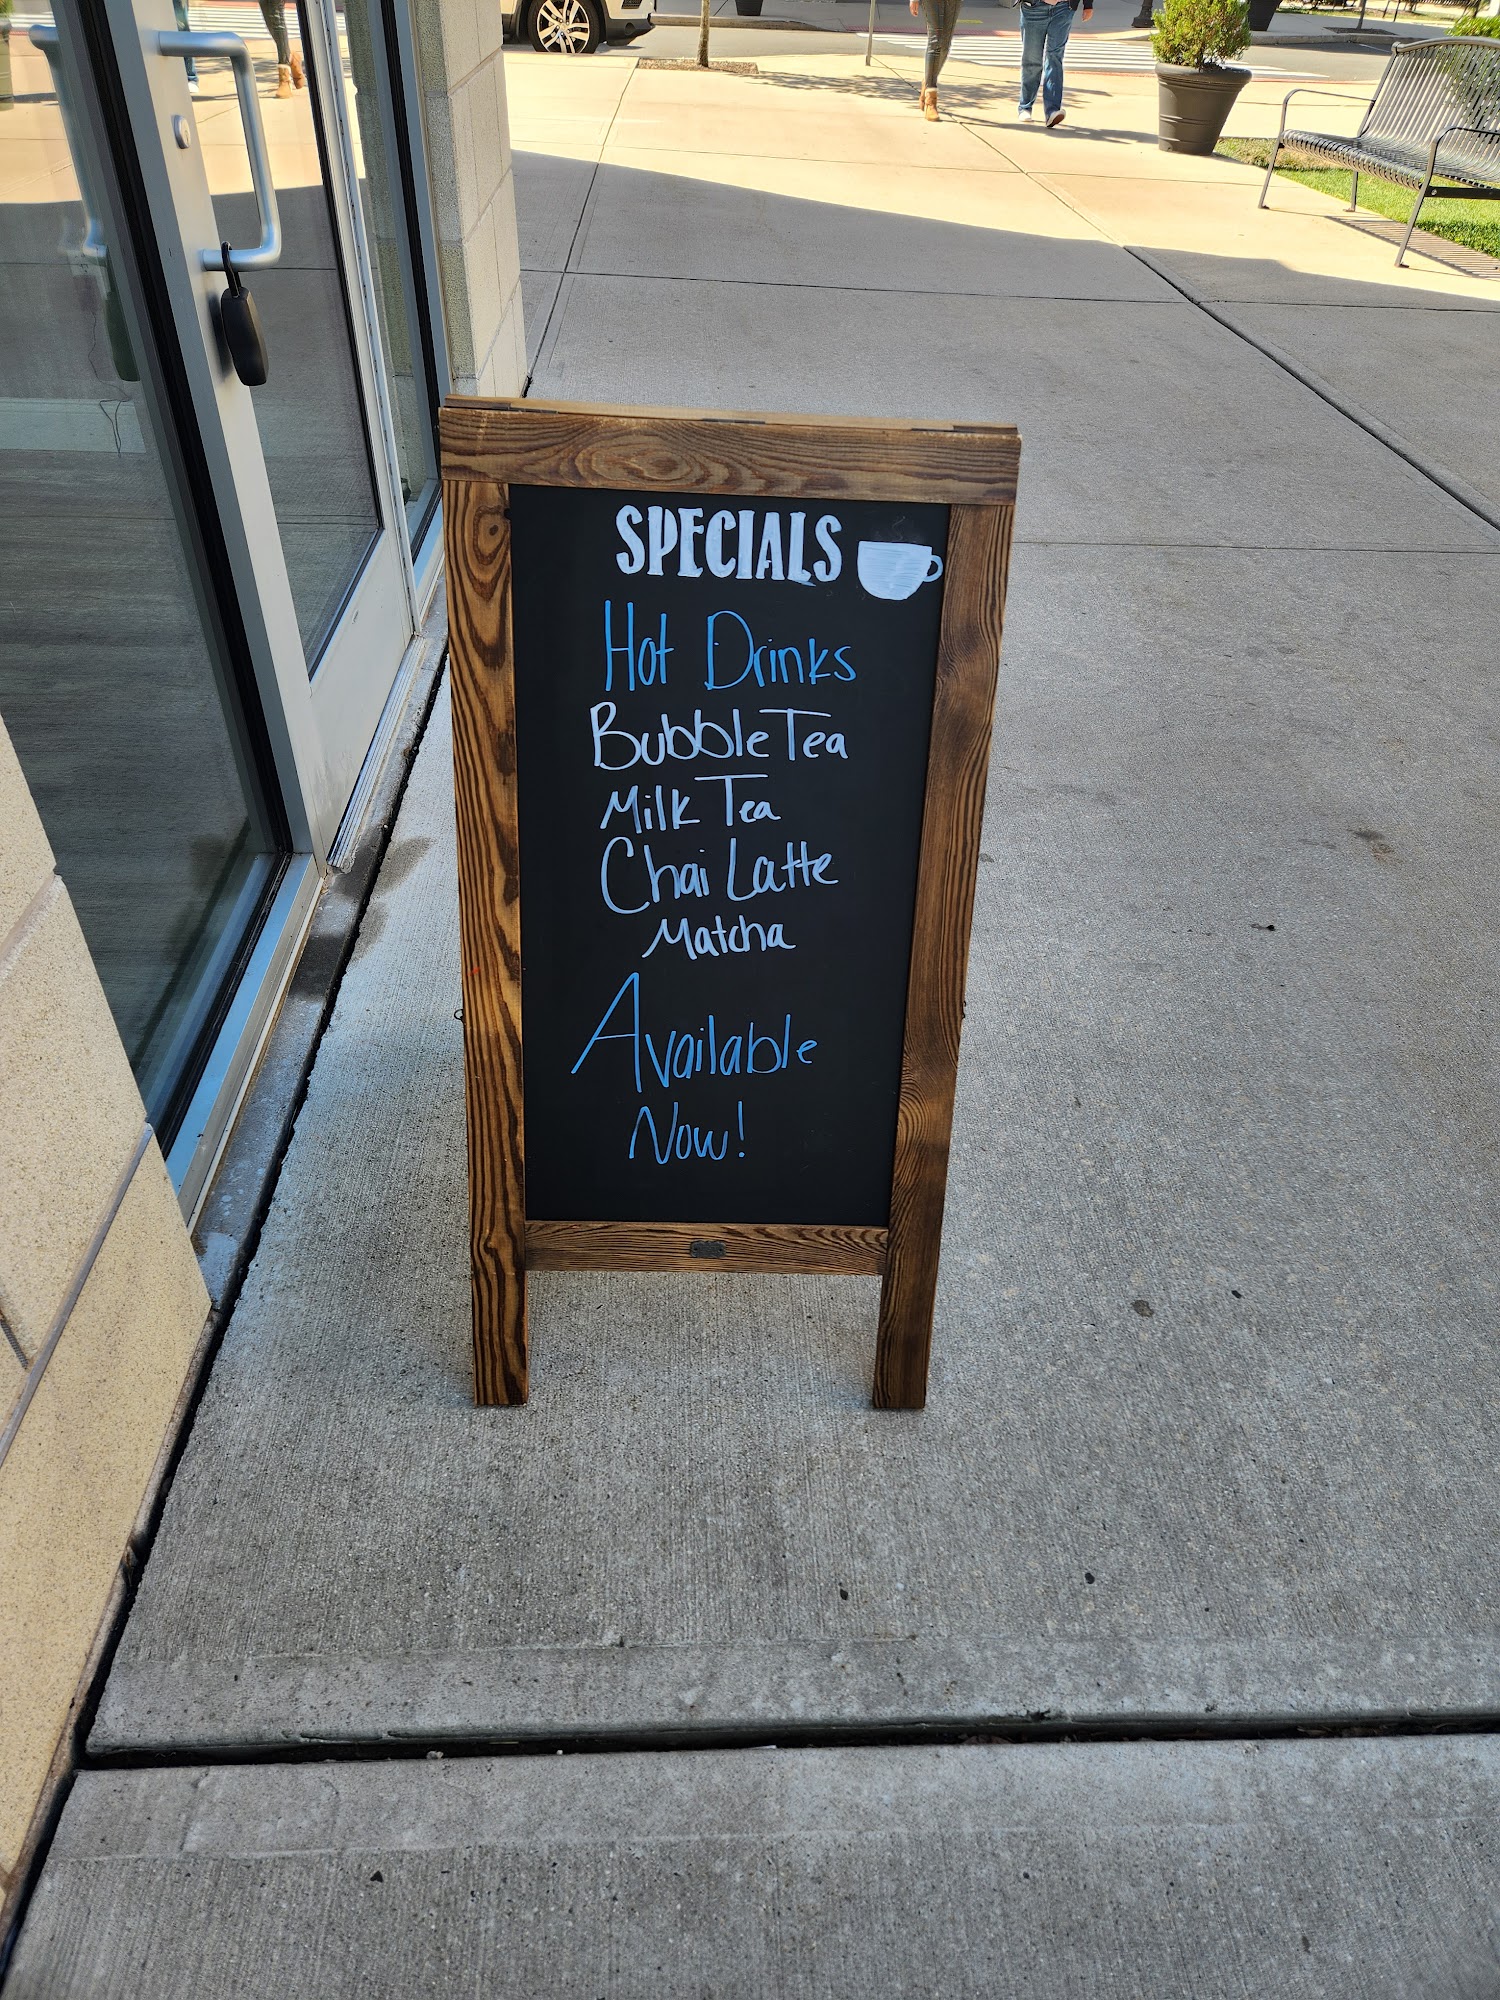 SPECIALS
Hot Drinks
Bubble Tea
Milk Tea
Chai Latte
Matcha
Available
Now!